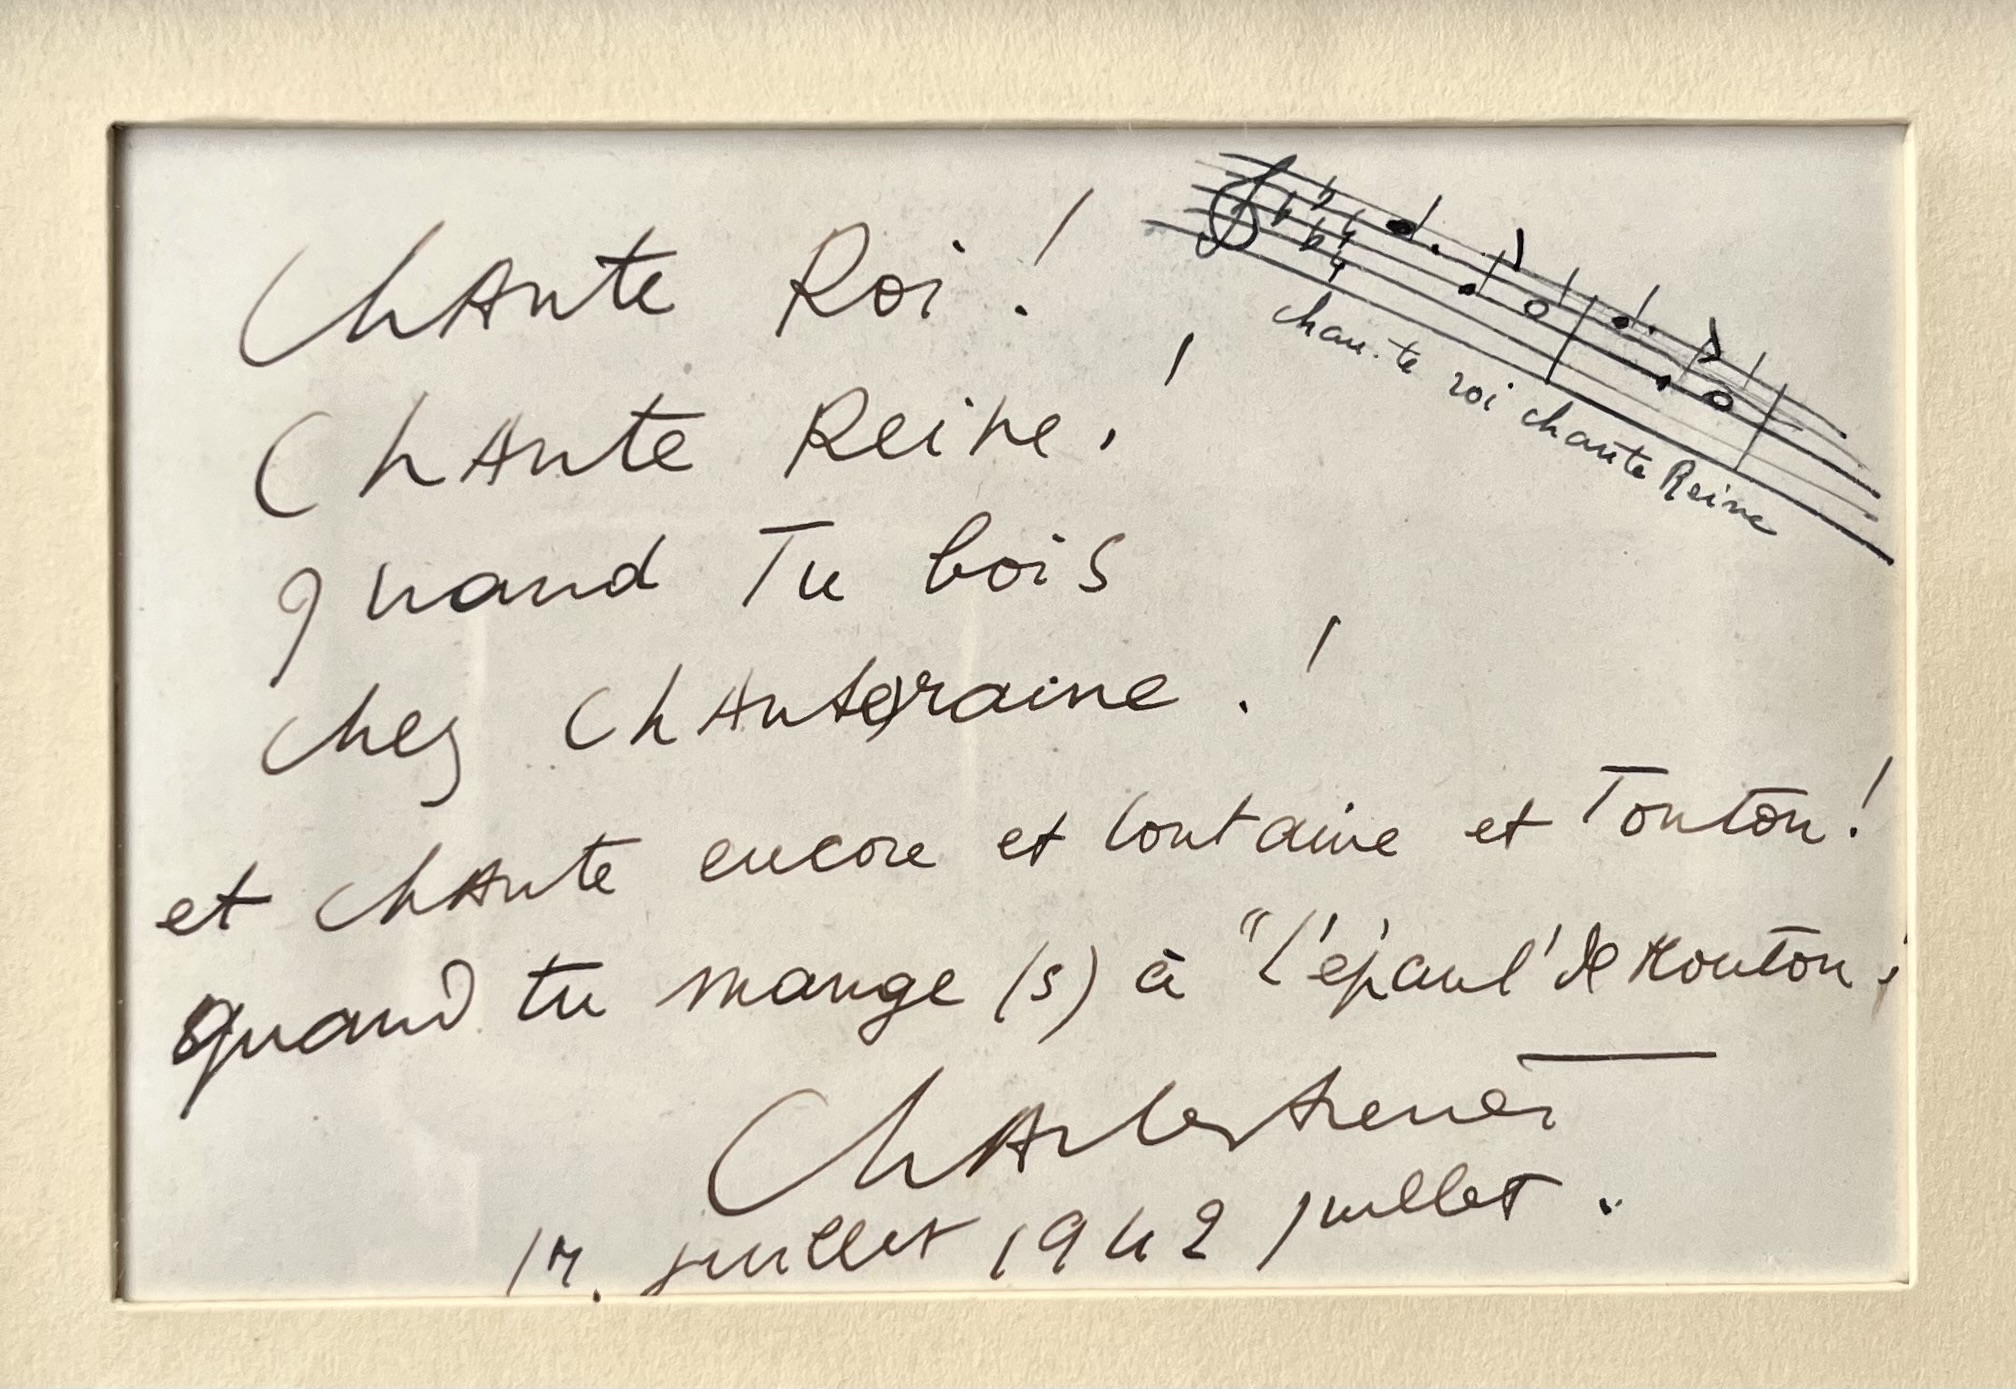 Chante Roi !
Chante Reine !
quand Tu bois
chez Chanteraine !
et chante encore et lontaine et Tonton !
quand tu mange (s) à "l'épaul' de Mouton !
Charles Trenet
17. juillet 1942 juillet .
chan-te roi chante Reine